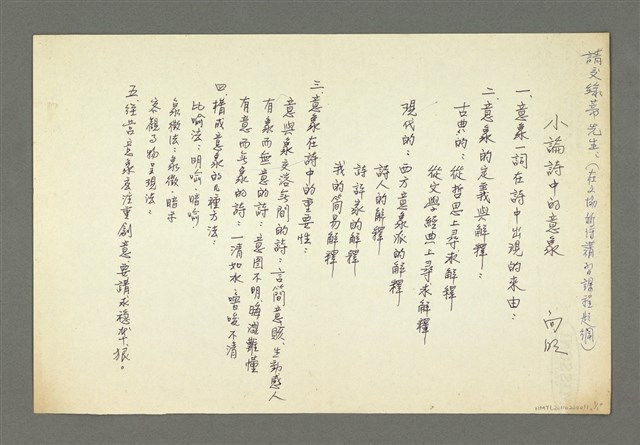 請交綠蒂先生：（在文協新詩講習課程題綱）
小論詩中的意象　向明
一、意象一詞在詩中出現的來由：
二、意象的定義與解釋：
古典的：從哲思上尋求解釋
從文學經典上尋求解釋
現代的：西方意象派的解釋
詩人的解釋
詩評家的解釋
我的簡易解釋
三、意象在詩中的重要性：
意與象交溶無間的詩：言簡意賅、生動感人
有象而無意的詩：意圖不明、晦澀難懂
有意而無象的詩：一清如水、嚕唆不清
四、構成意象的几種方法：
比喻法：明喻、暗喻
象徵法：象徵、暗示
客觀事物呈現法：
五、經營意象應注重創意、要講求穩准狠。